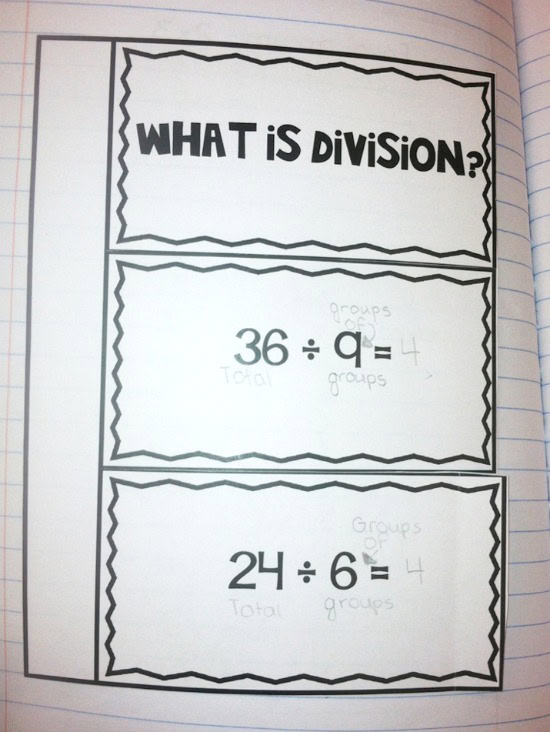 WHAT iS DiViSiON?
groups
of
36 ÷ 9 = 4
Total groups
Groups
OF
24 ÷ 6 = 4
Total groups